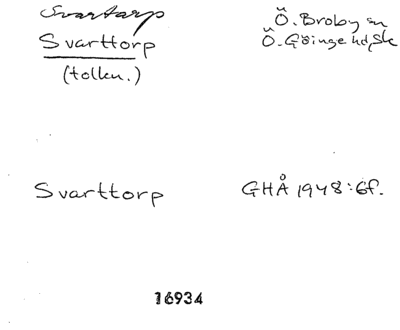 Svartarp Ö. Broby sn
Svarttorp Ö. Göinge hd, Sk
(tolkn.)
Svarttorp GHÅ 1948:6f.
16934